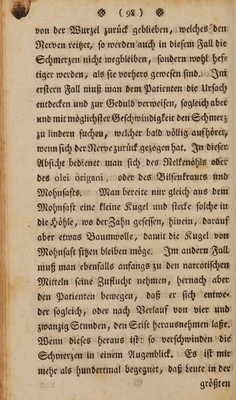 ( 98 )
von der Wurzel zurück geblieben, welches den
Nerven reitzet, so werden auch in diesem Fall die
Schmerzen nicht wegbleiben, sondern wohl hef-
tiger werden, als sie vorhero gewesen sind. Im
erstern Fall muß man dem Patienten die Ursach
entdecken und zur Geduld verweisen, sogleich aber
und mit möglichster Geschwindigkeit den Schmerz
zu lindern suchen, welcher bald völlig aufhöret,
wenn sich der Nerve zurück gezogen hat. In dieser
Absicht bedienet man sich des Nelkenöhls oder
des olei origani, oder des Bilsenkrauts und
Mohnsafts. Man bereite nur gleich aus dem
Mohnsaft eine kleine Kugel und stecke solche in
die Höhle, wo der Zahn gesessen, hinein, darauf
aber etwas Baumwolle, damit die Kugel von
Mohnsaft sitzen bleiben möge. Im andern Fall
muß man ebenfalls anfangs zu den narcotischen
Mitteln seine Zuflucht nehmen, hernach aber
den Patienten bewegen, daß er sich entwe-
der sogleich, oder nach Verlauf von vier und
zwanzig Stunden, den Stift herausnehmen laße.
Wenn dieses heraus ist: so verschwinden die
Schmerzen in einem Augenblick. Es ist mir
mehr als hundertmal begegnet, daß heute in der
größten